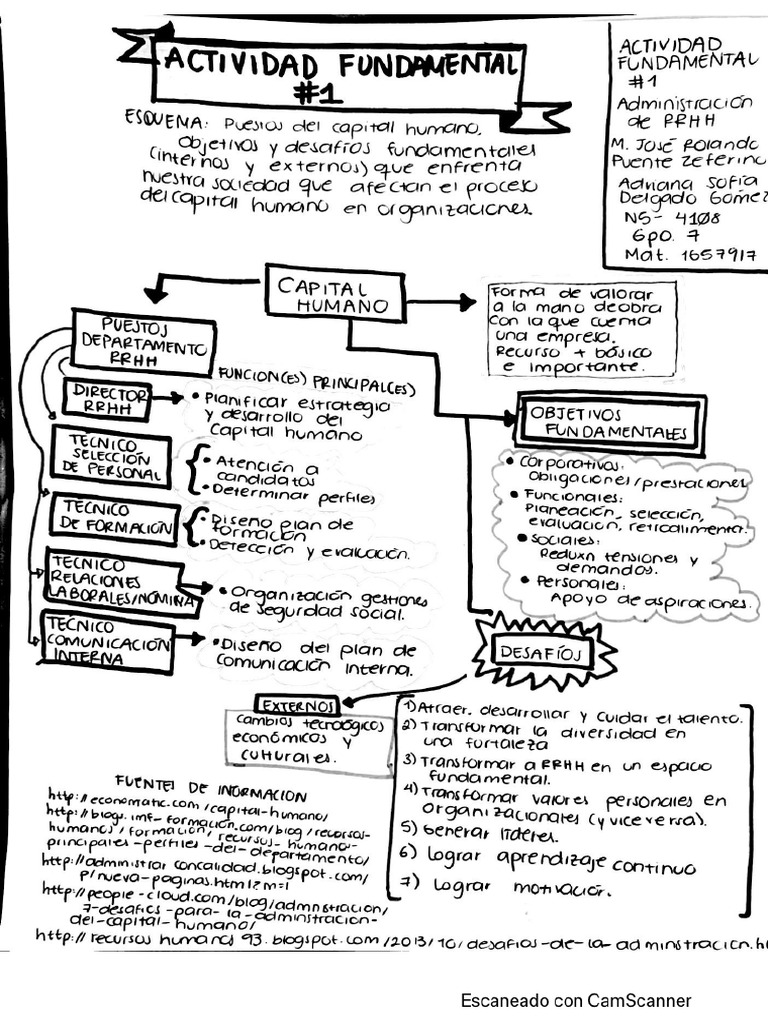 ACTIVIDAD FUNDAMENTAL
#1
ESQUEMA: Puestos del capital humano,
objetivos y desafíos fundamentales
(internos y externos) que enfrenta
nuestra sociedad que afectan el proceso
del capital humano en organizaciones.
ACTIVIDAD
FUNDAMENTAL
#1
Administración
de RRHH
M. José Rolando
Puente Zeferino
Adriana Sofía
Delgado Gómez
N5- 4108
Gpo. 7
Mat. 1657917
CAPITAL
HUMANO
Forma de valorar
a la mano de obra
con la que cuenta
una empresa.
Recurso + básico
e importante.
PUESTOS
DEPARTAMENTO
RRHH
FUNCION(ES) PRINCIPAL(ES)
DIRECTOR
RRHH
• Planificar estrategia
y desarrollo del
Capital humano
TECNICO
SELECCIÓN
DE PERSONAL
• Atención a
candidatos
• Determinar perfiles
TECNICO
DE FORMACIÓN
• Diseño plan de
formación
• Detección y evaluación.
TECNICO
RELACIONES
LABORALES/NÓMINA
• Organización gestiones
de seguridad social.
TECNICO
COMUNICACIÓN
INTERNA
• Diseño del plan de
comunicación interna.
OBJETIVOS
FUNDAMENTALES
• Corporativos:
Obligaciones/prestaciones
• Funcionales:
Planeación, selección,
evaluación, retroalimenta.
• Sociales:
Reduxn tensiones y
demandos.
• Personales:
Apoyo de aspiraciones.
DESAFÍOS
EXTERNOS
cambios tecnológicos
económicos y
culturales.
1) Atraer, desarrollar y cuidar el talento.
2) Transformar la diversidad en
una fortaleza
3) Transformar a RRHH en un espacio
fundamental.
4) Transformar valores personales en
organizacionales (y viceversa).
5) Generar líderes.
6) Lograr aprendizaje continuo
7) Lograr motivación.
FUENTES DE INORMACION
http://economatic.com/capital-humano/
http://blogs.imf-formacion.com/blog/recursos-
humanos/formacion/recursos-humano-
principales-perfiles-del-departamento/
http://administrar concalidad.blogspot.com/
p/nueva-paginas.html?m=1
http://people-cloud.com/blog/admnstracion/
7-desafios-para-la-adminstracion-
del-capital-humano/
http://recursos humanos 93.blogspot.com/2013/10/desafios-de-la-adminstracion.h
Escaneado con CamScanner